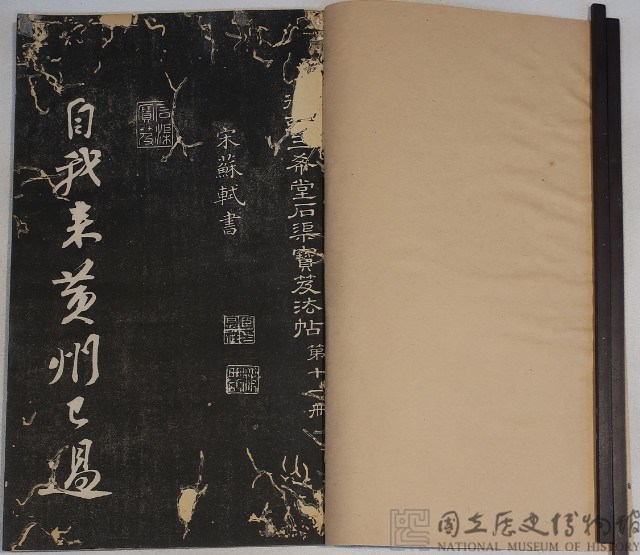 三希堂石渠寶笈法帖第十一冊
宋蘇軾書
石渠寶笈
自我来黃州已過
國立歷史博物館
NATIONAL MUSEUM OF HISTORY